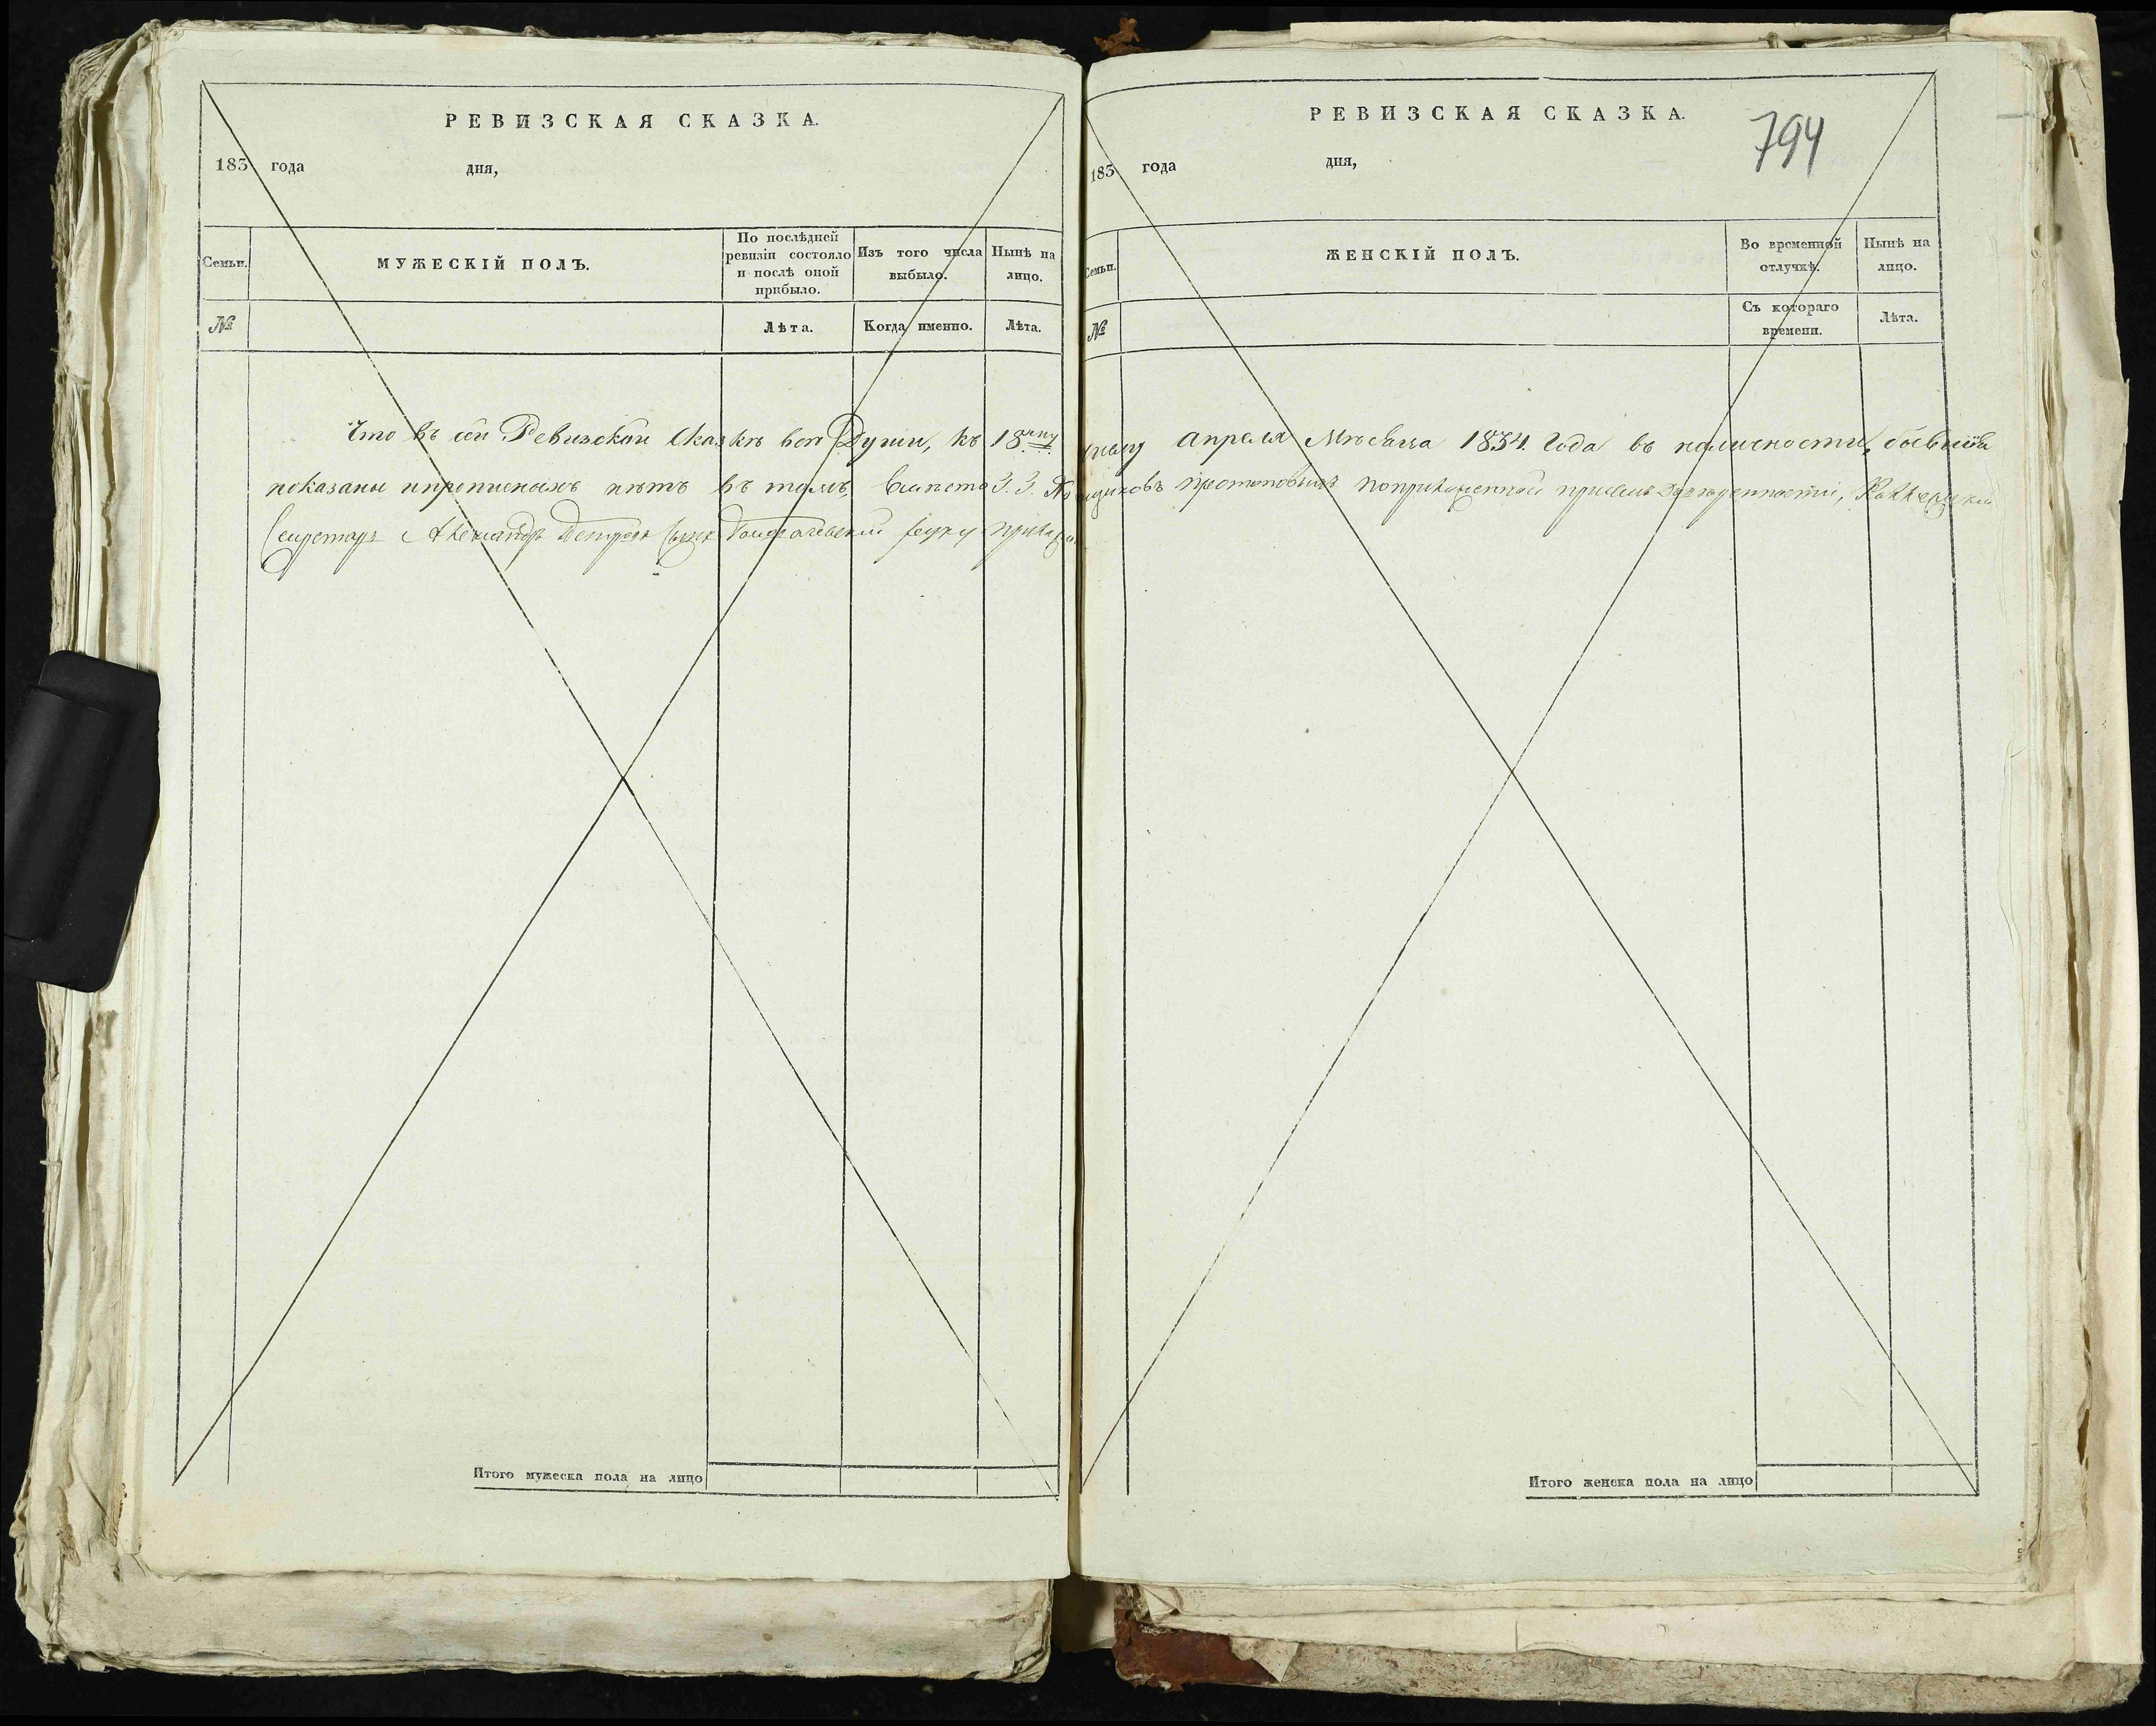 РЕВИЗСКАЯ СКАЗКА.
183 года дня,
Семьи.
МУЖЕСКІЙ ПОЛЪ.
По послѣдней ревизіи состояло и послѣ оной прибыло.
Изъ того числа выбыло.
Нынѣ на лицо.
№
Лѣта.
Когда именно.
Лѣта.
РЕВИЗСКАЯ СКАЗКА.
794
183 года дня,
Семьи.
ЖЕНСКІЙ ПОЛЪ.
Во временной отлучкѣ.
Нынѣ на лицо.
№
Съ котораго времени.
Лѣта.
Что въ сей Ревизской Сказкѣ всѣ Души, къ 18му числу Апреля Мѣсяца 1834. Года въ наличности, бывшія
показаны и прописныхъ нѣтъ въ томъ, вмѣсто Помѣщиковъ
Секретарь Александръ Петровъ сынъ руку
Итого мужеска пола на лицо
Итого женска пола на лицо